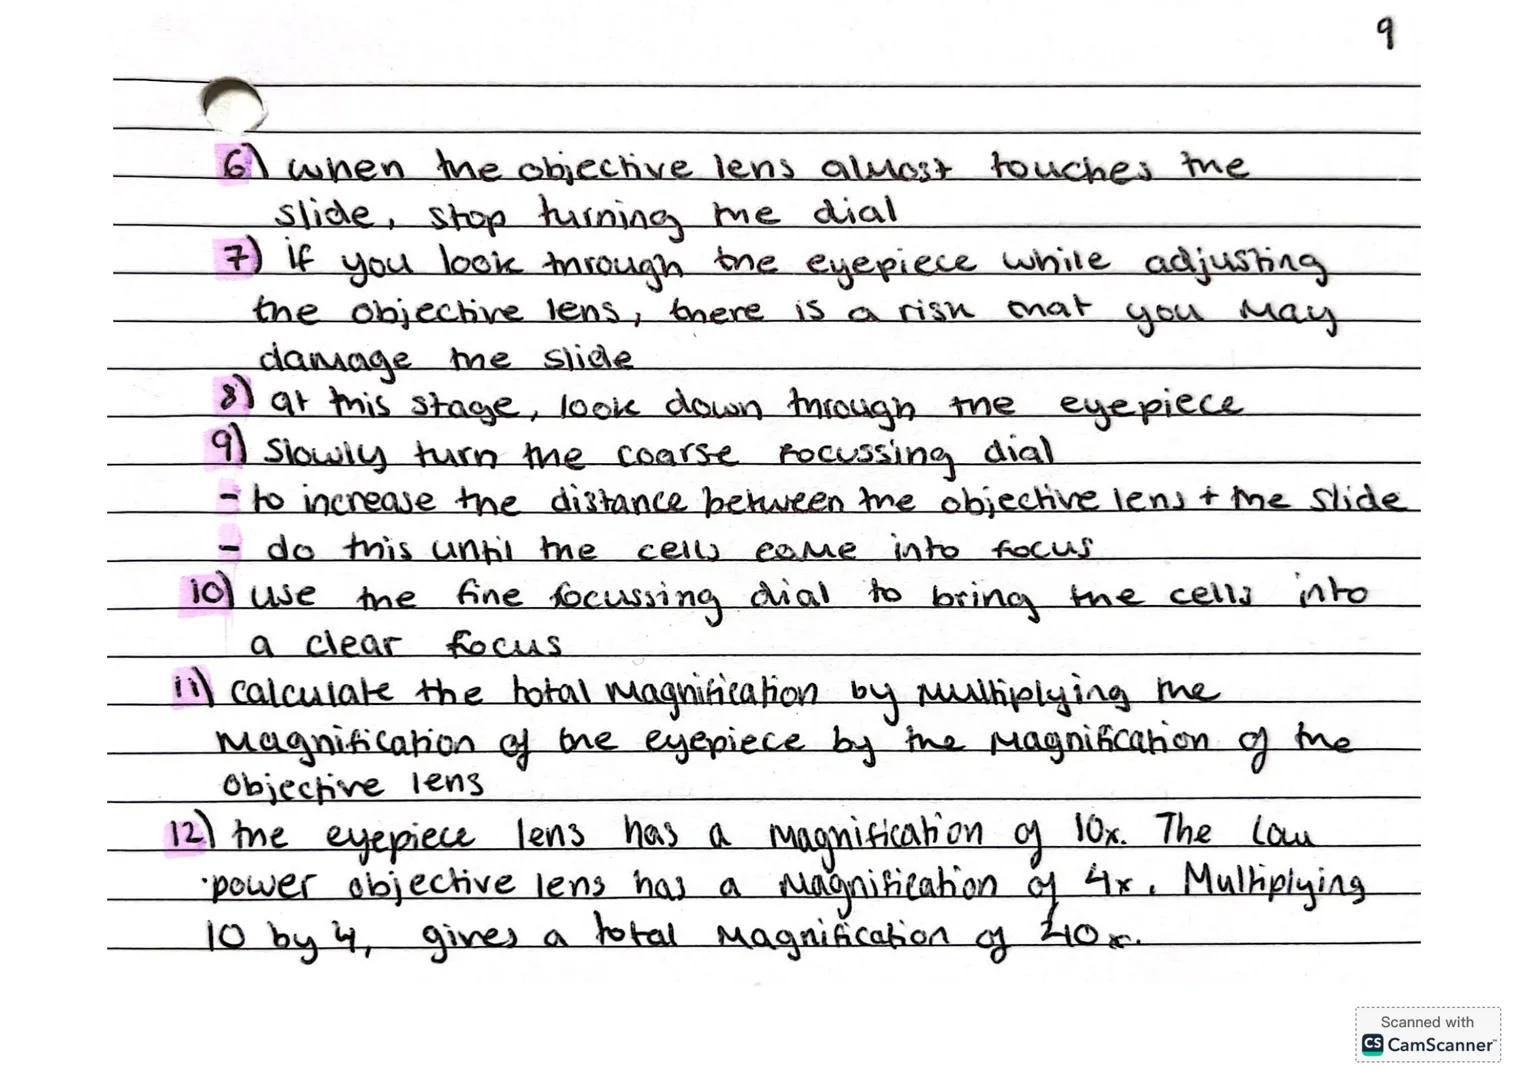 9
6) when the objective lens almost touches the
slide, stop turning the dial
7) if you look through the eyepiece while adjusting
the objective lens, there is a risk that you may
damage the slide
8) at this stage, look down through the eyepiece
9) slowly turn the coarse focussing dial
- to increase the distance between the objective lens + the slide
- do this until the cells come into focus
10) use the fine focussing dial to bring the cells into
a clear focus
11) calculate the total magnification by multiplying the
magnification of the eyepiece by the magnification of the
objective lens
12) the eyepiece lens has a magnification of 10x. The low
power objective lens has a magnification of 4x. Multiplying
10 by 4, gives a total magnification of 40x.
Scanned with
CS CamScanner